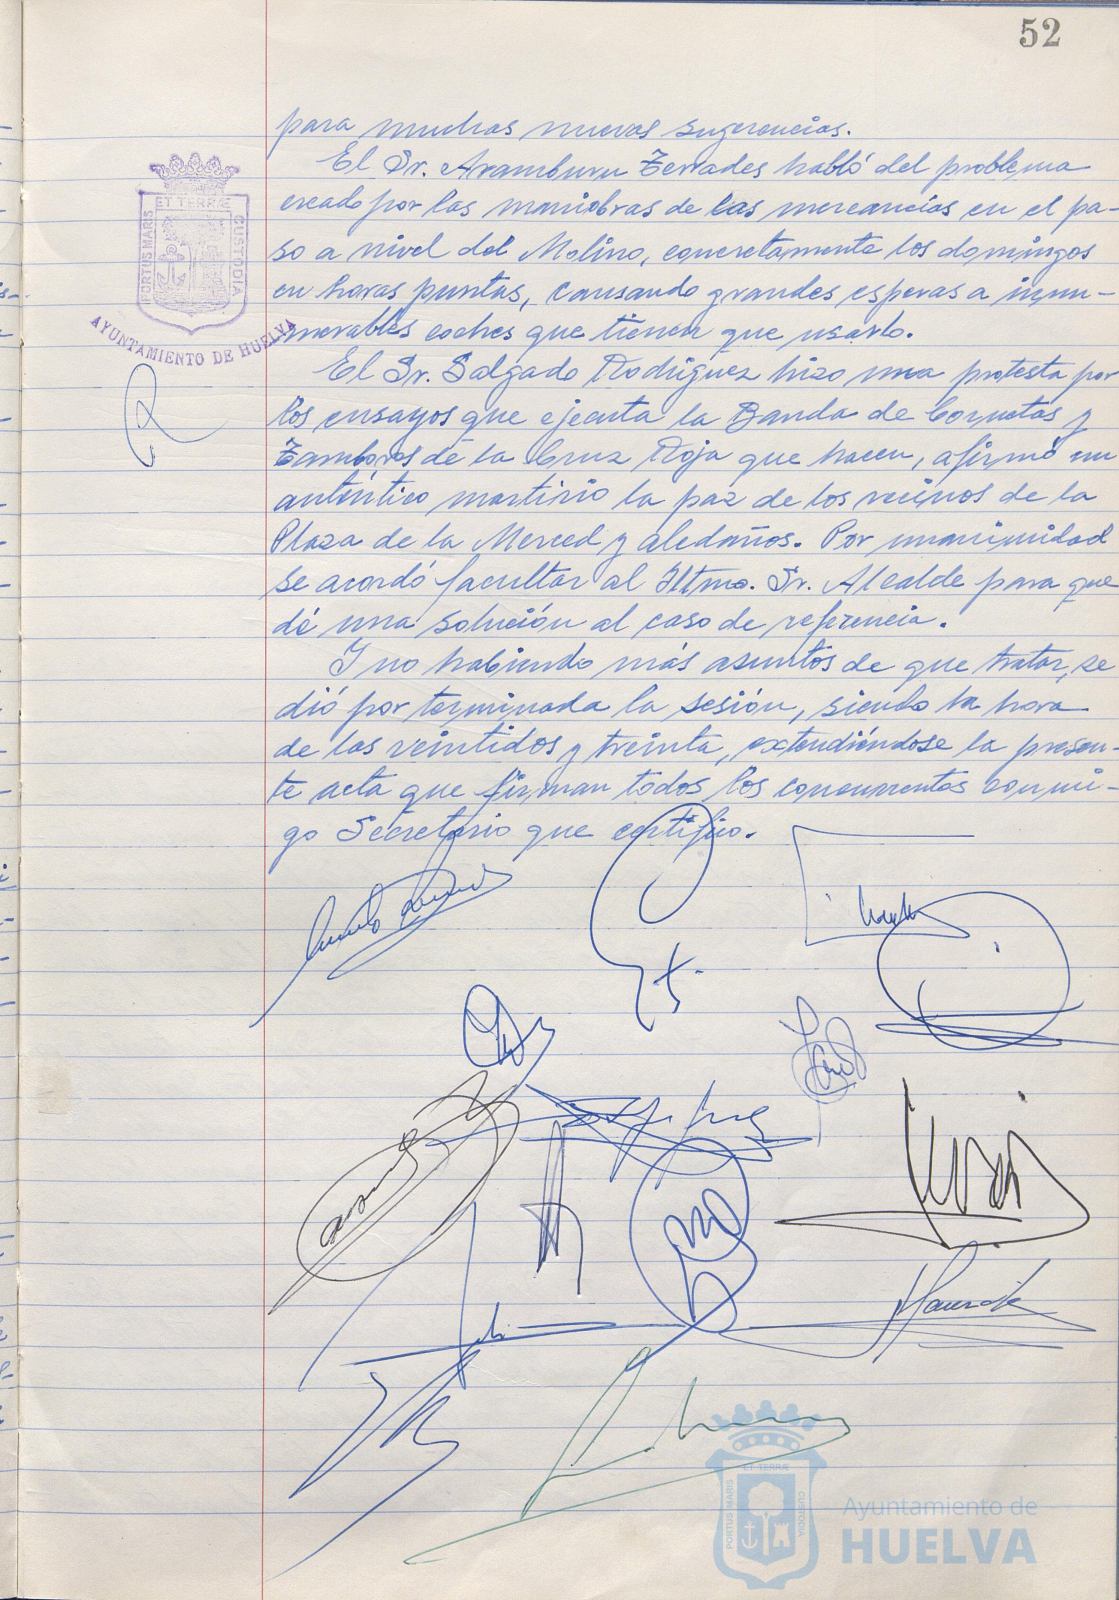 52
para muchas nuevas sugerencias.
El Sr. Aramburu Terrades habló del problema
creado por las maniobras de las mercancías en el pa-
so a nivel del Molino, concretamente los domingos
en horas puntas, causando grandes esperas a innu-
merables coches que tienen que usarlo.
El Sr. Salgado Rodríguez hizo una protesta por
los ensayos que ejecuta la Banda de Cornetas y
Tambores de la Cruz Roja que hacen, afirmó un
auténtico martirio la paz de los vecinos de la
Plaza de la Merced y aledaños. Por unanimidad
se acordó facultar al Iltmo. Sr. Alcalde para que
dé una solución al caso de referencia.
Y no habiendo más asuntos de que tratar, se
dió por terminada la sesión, siendo la hora
de las veintidos y treinta, extendiéndose la presen-
te acta que firman todos los concurrentes conmi-
go Secretario que certifico.
ET TERRÆ
PORTUS MARIS
CUSTODIA
AYUNTAMIENTO DE HUELVA
ET TERRÆ
PORTUS MARIS
CUSTODIA
Ayuntamiento de
HUELVA